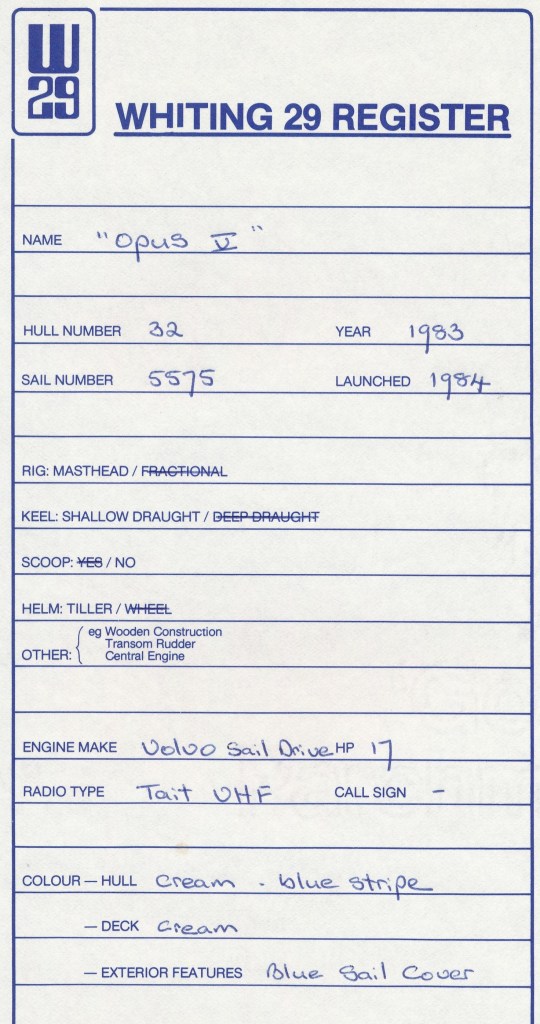 W
29
WHITING 29 REGISTER
NAME "Opus V"
HULL NUMBER 32 YEAR 1983
SAIL NUMBER 5575 LAUNCHED 1984
RIG: MASTHEAD / FRACTIONAL
KEEL: SHALLOW DRAUGHT / DEEP DRAUGHT
SCOOP: YES / NO
HELM: TILLER / WHEEL
eg Wooden Construction
Transom Rudder
OTHER: Central Engine
ENGINE MAKE Volvo Sail Drive HP 17
RADIO TYPE Tait VHF CALL SIGN -
COLOUR — HULL Cream - blue stripe
— DECK Cream
— EXTERIOR FEATURES Blue Sail Cover